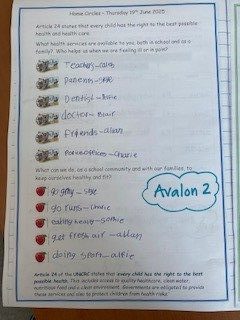 Home Circles – Thursday 19th June 2025
Article 24 states that every child has the right to the best possible
health and health care.
What health services are available to you, both in school and as a
family? Who helps us when we are feeling ill or in pain?
Teachers-
Parents-
Dentist-
doctor- Blair
friends- allan
-Charlie
What can we do, as a school community and with our families, to
keep ourselves healthy and fit?
go
go runs-
eating
get fresh air -allan
doing sport-alfie
Avalon 2
Article 24 of the UNCRC states that every child has the right to the best
possible health. This includes access to quality healthcare, clean water,
nutritional food and a clean environment. Governments are obligated to provide
these services and also to protect children from health risks.